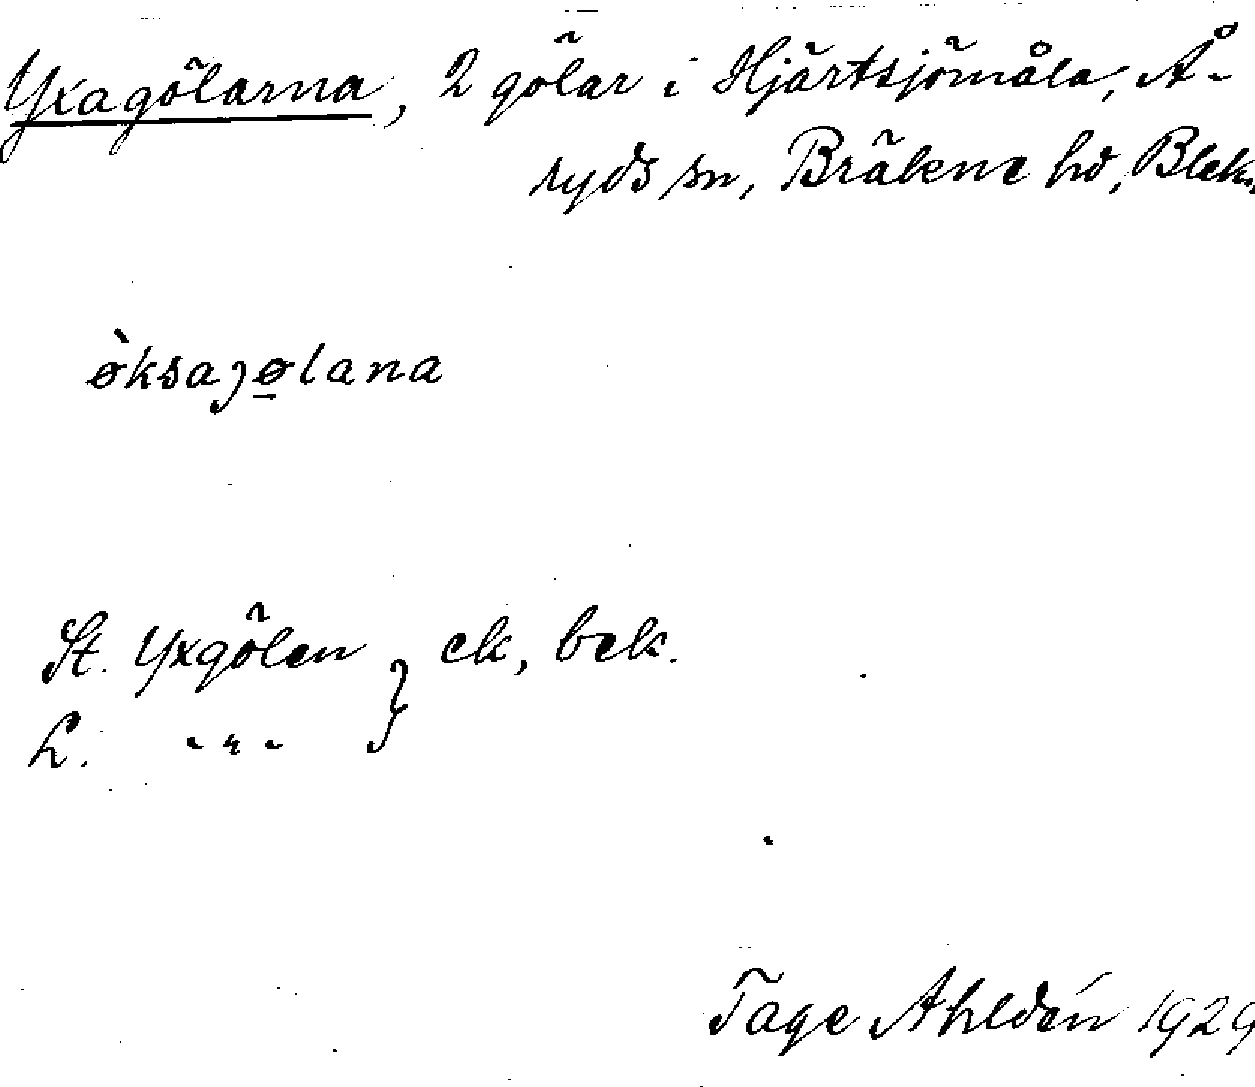 Yxagölarna, 2 gölar i Hjärtsjömåla, Å-
ryds sn, Bräkne hd, Blek.
ø̀ksaȷø̱lana
St. Yxgölen } ek, bek.
L. " " "
Tage Ahldén 1929